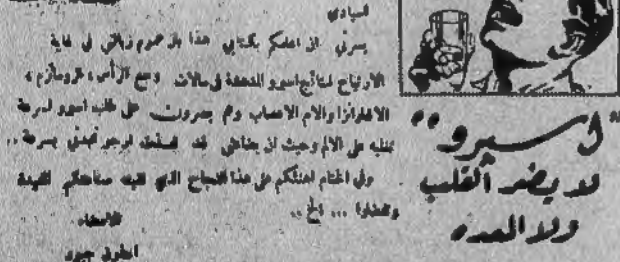 لسيادي
يسرني ان اعلمكم بكتابي هذا بان عموم زبائني في غاية
الارتياح لنتائج اسبرو المدهشة في حالات وجع الرأس، الروماتزم،
الانفلونزا والام الاعصاب وهم يصرون على طلب اسبرو لسرعة
تغلبه على الالم وحيث ان بضاعتي قد ارجو بسرعة ..
وفي الختام اهنئكم على هذا النجاح الذي
وتفضلوا ... الخ ..
الامضاء
انطون
"اسبرو"
لا يضر القلب
ولا المعده